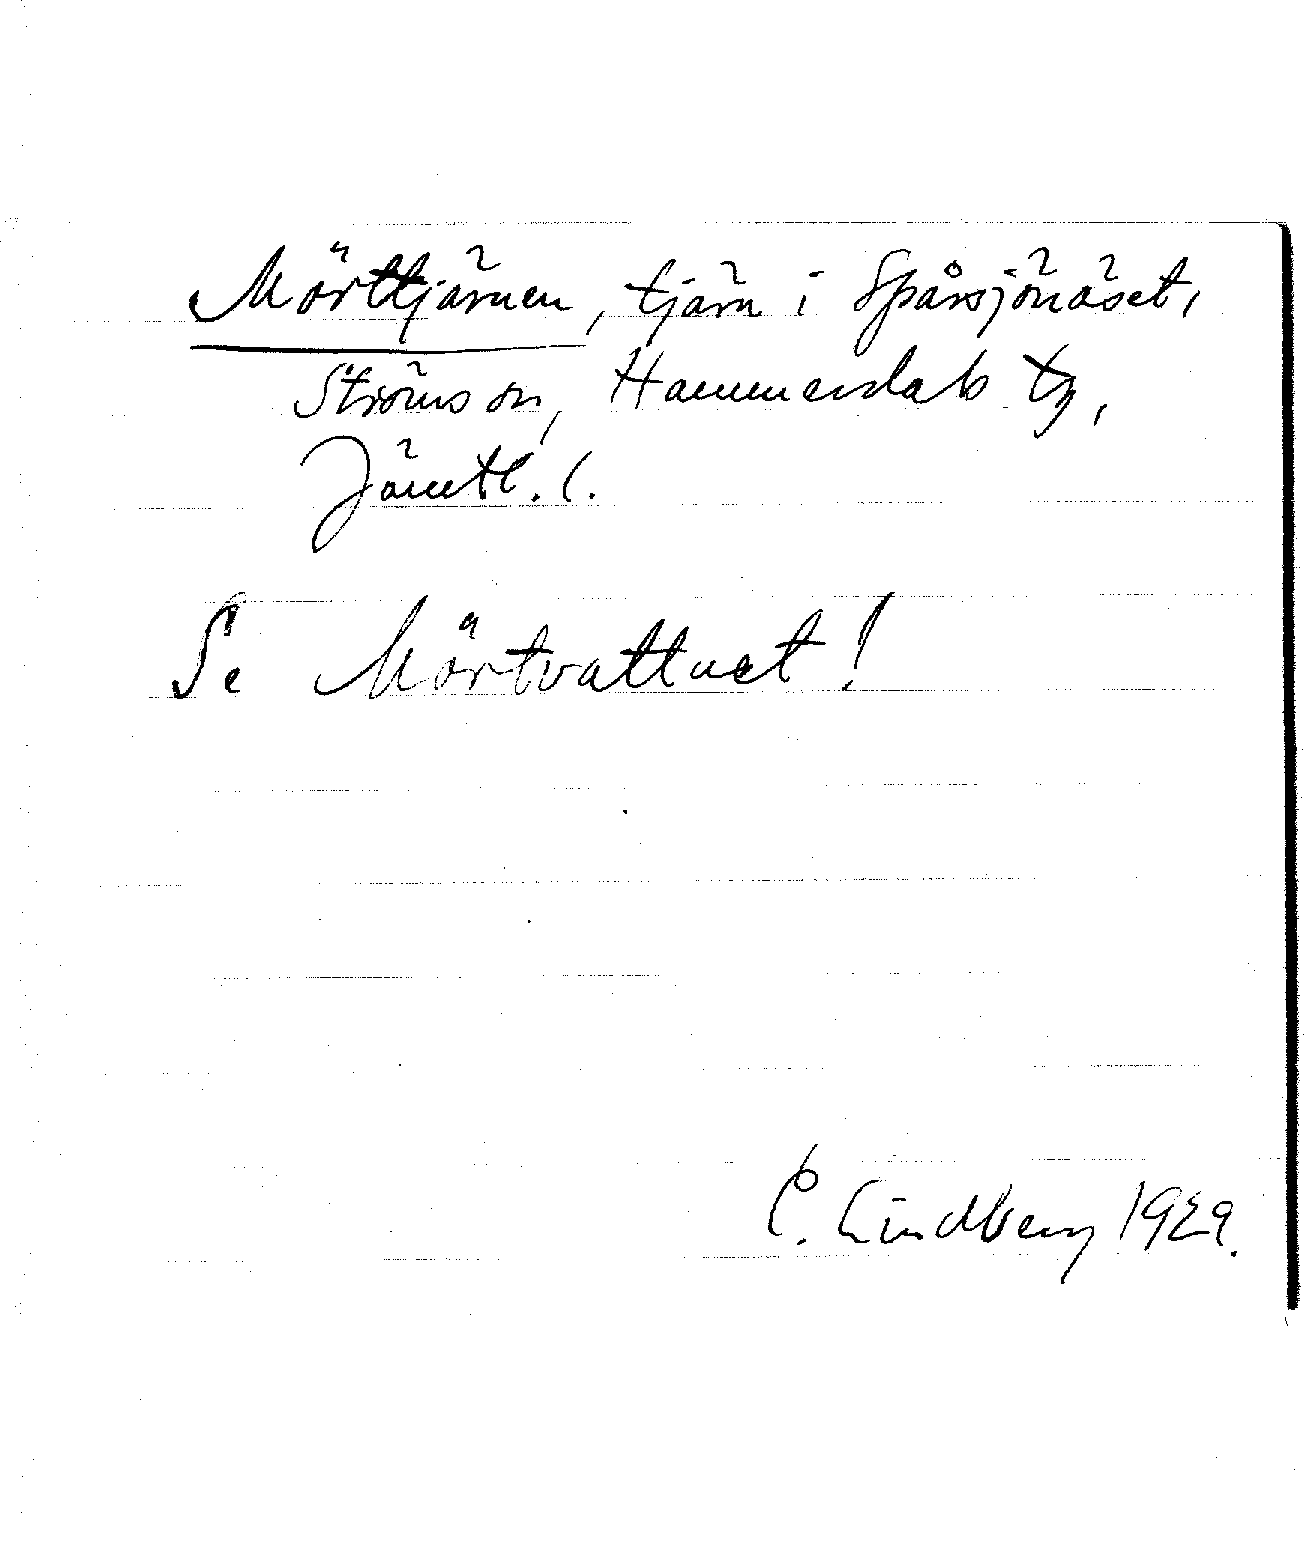 Mörttjärnen, tjärn i Spårsjönäset,
Ströms sn, Hammerdals tg,
Jämtl. l.
Se Mörtvattnet!
C. Lindberg 1929.